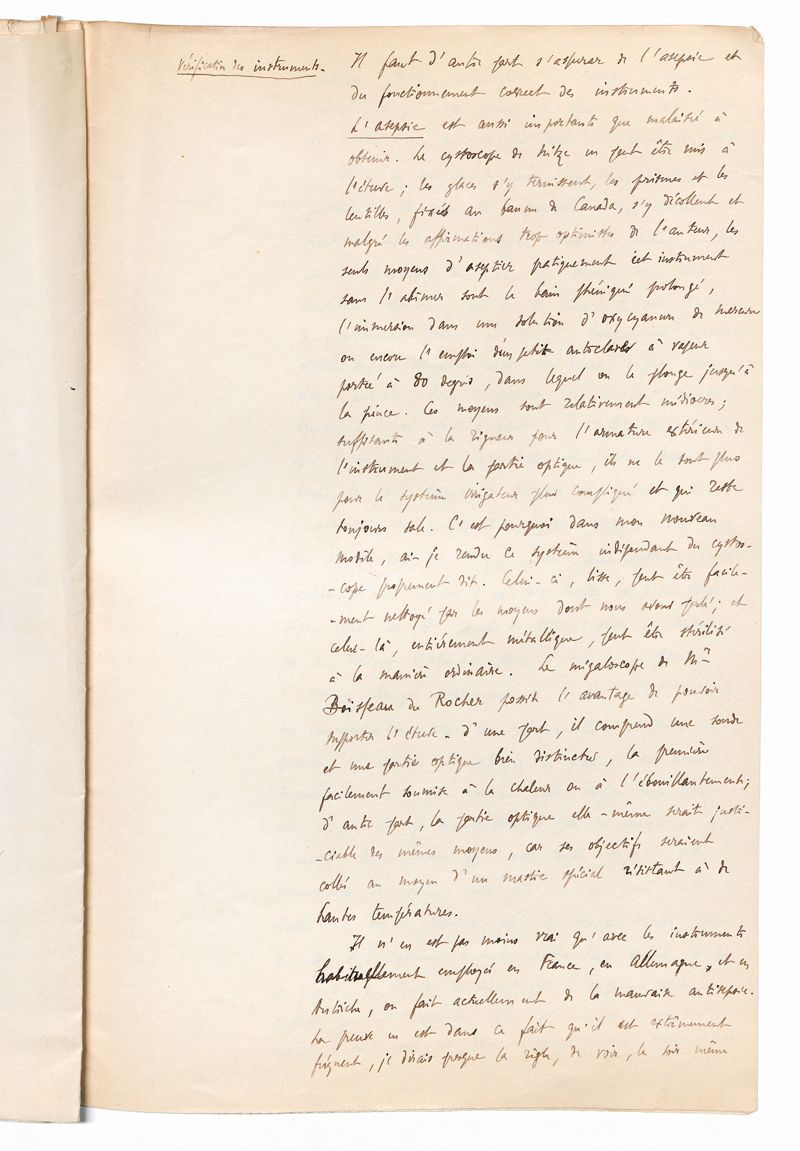 Vérification des instruments.
Il faut d'autre part s'assurer de l'asepsie et
du fonctionnement correct des instruments.
L'asepsie est aussi importante que malaisée à
obtenir. Le cystoscope de Nitze ne peut être mis à
l'étuve ; les glaces s'y ternissent, les prismes et les
lentilles, fixés au baume de Canada, s'y décollent et
malgré les affirmations trop optimistes de l'auteur, les
seuls moyens d'aseptier pratiquement cet instrument
sans l'abimer sont le bain phéniqué prolongé,
l'immersion dans une solution d'oxycyanure de mercure
ou encore l'emploi d'un petit autoclave à vapeur
portée à 80 degrés, dans lequel on le plonge jusqu'à
la pince. Ces moyens sont relativement médiocres ;
suffisants à la rigueur pour l'armature extérieure de
l'instrument et la partie optique, ils ne le sont plus
pour le système irrigateur plus compliqué et qui reste
toujours sale. C'est pourquoi dans mon nouveau
modèle, ai-je rendu ce système indépendant du cystos-
-cope proprement dit. Celui-ci, lisse, peut être facile-
-ment nettoyé par les moyens dont nous avons parlé ; et
celui-là, entièrement métallique, peut être stérilisé
à la manière ordinaire. Le mégaloscope de Mr
Boisseau du Rocher possède l'avantage de pouvoir
supporter l'étuve - d'une part, il comprend une sonde
et une partie optique bien distinctes, la première
facilement soumise à la chaleur ou à l'ébouillantement ;
d'autre part, la partie optique elle-même serait justi-
-ciable des mêmes moyens, car ses objectifs seraient
collés au moyen d'un mastic spécial résistant à de
hautes températures.
Il n'en est pas moins vrai qu'avec les instruments
habituellement employés en France, en Allemagne, et en
Autriche, on fait actuellement de la mauvaise antisepsie.
La preuve en est dans ce fait qu'il est extrêmement
fréquent, je dirais presque la règle, de voir, le soir même